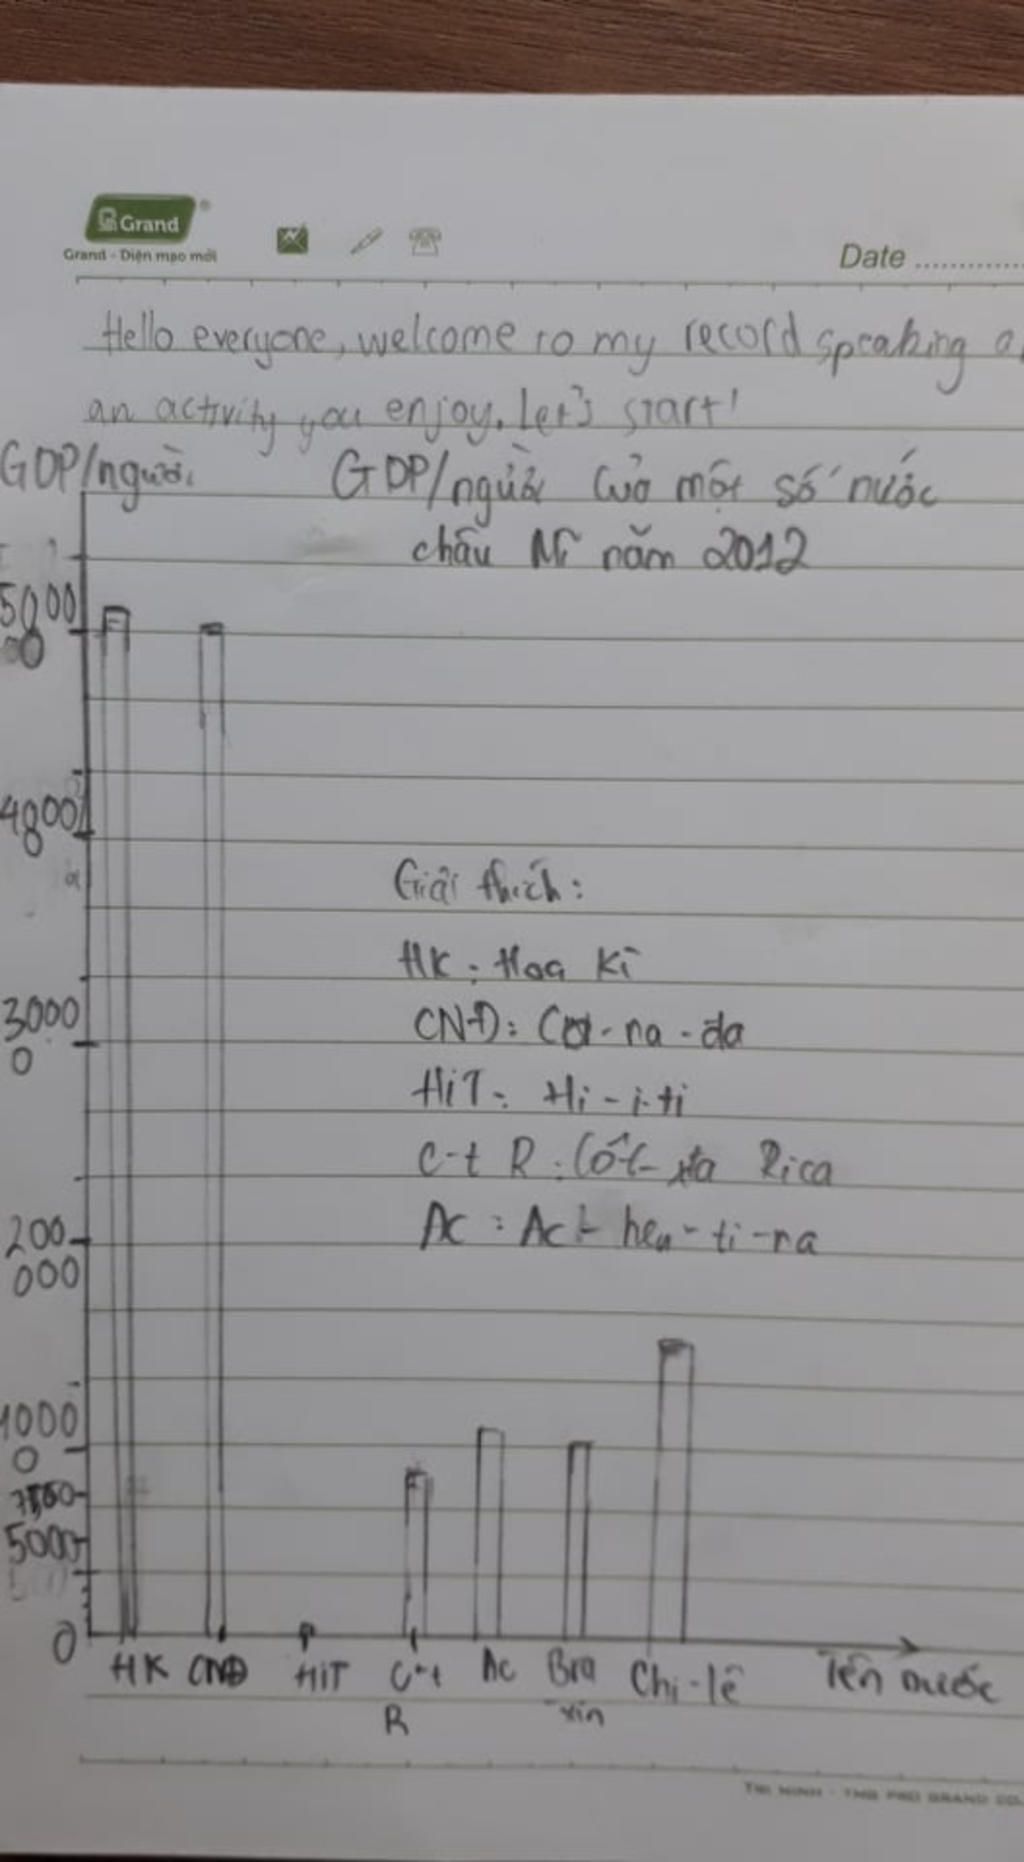 Grand
Grand - Diện mạo mới
Date
Hello everyone, welcome to my record speaking
an activity you enjoy. Let's start!
GDP/người
GDP/người của một số nước
châu Mĩ năm 2012
50000
40000
30000
200000
10000
7500
5000
0
Giải thích:
HK: Hoa Kì
CNĐ: Ca-na-da
HiT: Hi-i-ti
C-t R: Cốt-xta Rica
Ac: Ac-hen-ti-na
HK CNĐ HiT C-t R Ac Bra xin Chi-lê Tên nước